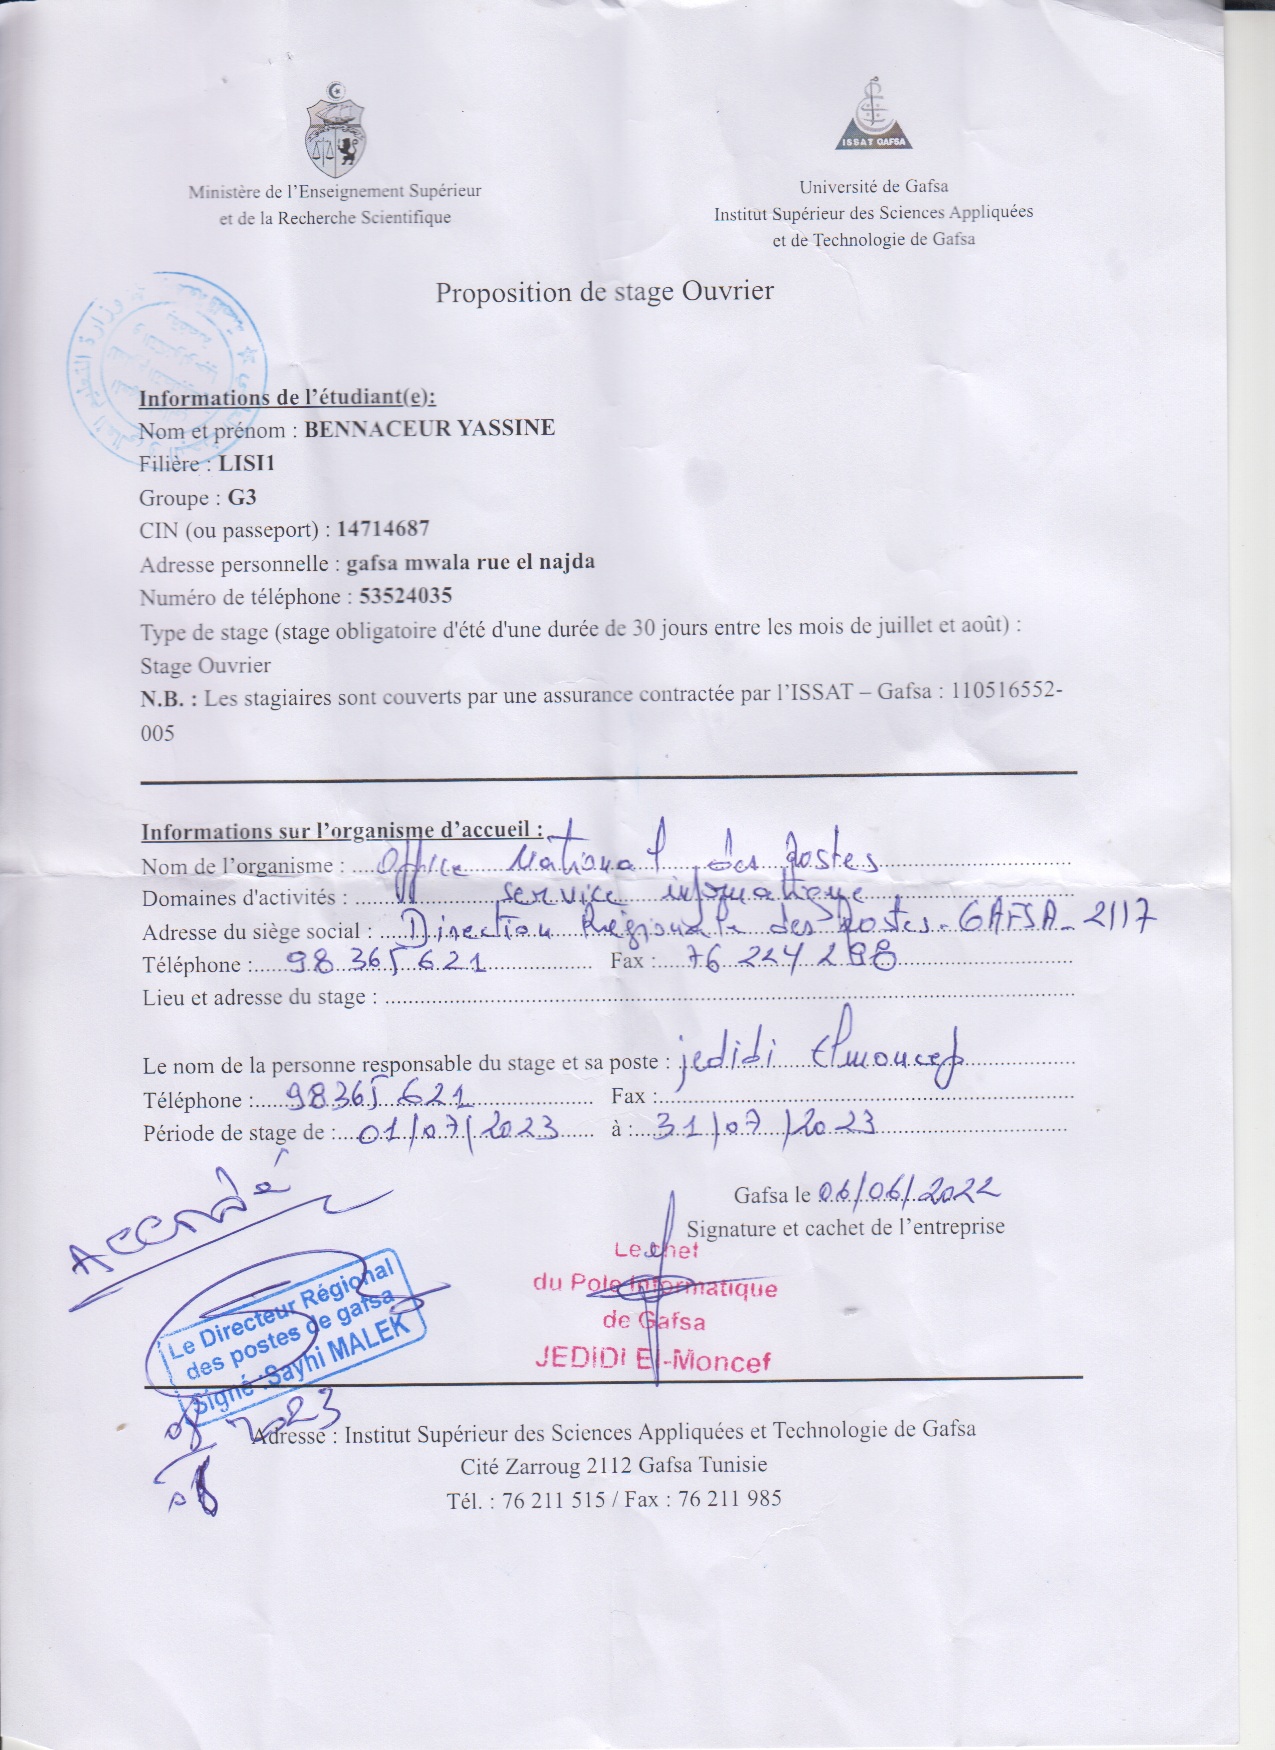 ISSAT GAFSA
Ministère de l'Enseignement Supérieur
et de la Recherche Scientifique
Université de Gafsa
Institut Supérieur des Sciences Appliquées
et de Technologie de Gafsa
Proposition de stage Ouvrier
Informations de l'étudiant(e):
Nom et prénom : BENNACEUR YASSINE
Filière : LISI1
Groupe : G3
CIN (ou passeport) : 14714687
Adresse personnelle : gafsa mwala rue el najda
Numéro de téléphone : 53524035
Type de stage (stage obligatoire d'été d'une durée de 30 jours entre les mois de juillet et août) :
Stage Ouvrier
N.B. : Les stagiaires sont couverts par une assurance contractée par l'ISSAT – Gafsa : 110516552-
005
Informations sur l'organisme d'accueil :
Nom de l'organisme : Office National des postes
Domaines d'activités : service informatique
Adresse du siège social : Direction Régionale des Postes - GAFSA - 2117
Téléphone : 98 365 621 Fax : 76 224 288
Lieu et adresse du stage :
Le nom de la personne responsable du stage et sa poste : jedidi Elmoncef
Téléphone : 98365 621 Fax :
Période de stage de : 01/07/2023 à : 31/07/2023
Accordé
Gafsa le 06/06/2022
Signature et cachet de l'entreprise
Le chef
du Pole Informatique
de Gafsa
JEDIDI El-Moncef
Le Directeur Régional
des postes de gafsa
Signé :Sayhi MALEK
2023
Adresse : Institut Supérieur des Sciences Appliquées et Technologie de Gafsa
Cité Zarroug 2112 Gafsa Tunisie
Tél. : 76 211 515 / Fax : 76 211 985